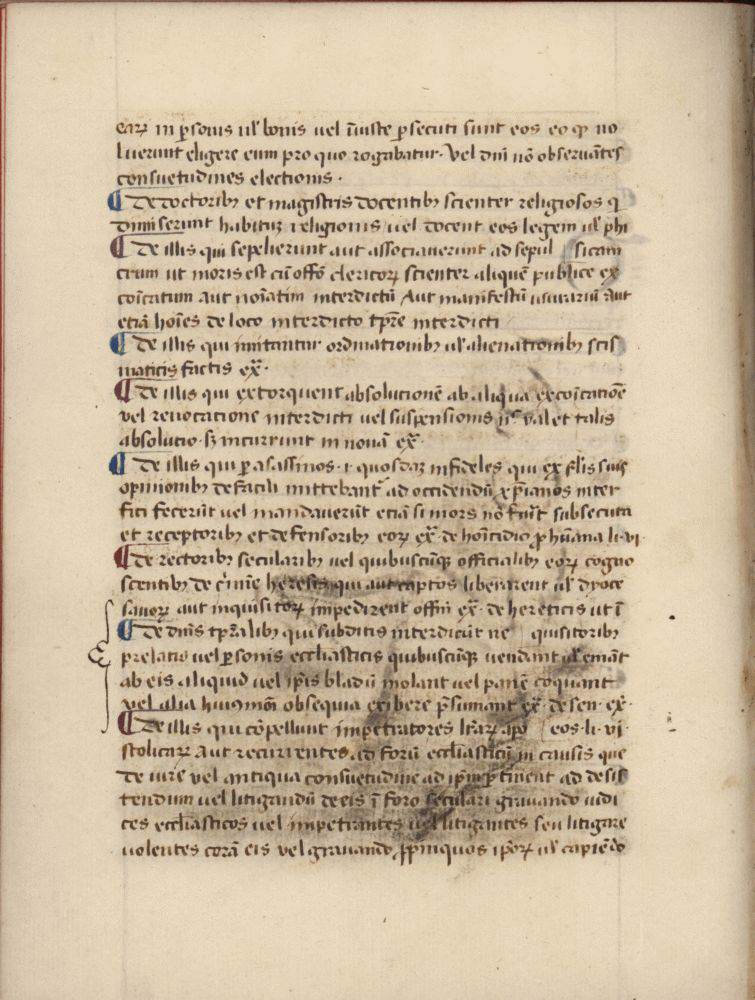 earꝝ in ꝑsonis ul̃ bonis uel iniuste ꝑsecuti sunt eos eo ꝙ no
luerunt eligere eum pro quo rogabatur · Vel dum nõ obseruãtes
consuetudines electionis ·
¶ De doctoribꝫ et magistris docentibꝫ scienter religiosos q̃
dimiserunt habitũ religionis uel docent eos legem ul̃ phi
¶ De illis qui sepelierunt aut associauerunt ad sepul sicam
crum ut moris est cũ offõ clericoꝝ scienter aliquẽ publice ex
cõicatum aut noĩatim interdictũ Aut manifestũ usurariũ Aut
etiã hoĩes de loco interdicto tp̃re interdicti
¶ De illis qui imitantur ordinationibꝫ ul̃ alienationibꝫ scis
maticis factis ex̃ ·
¶ De illis qui extorquent absolutionẽ ab aliqua excõicatiõe
vel reuocatione interdicti uel suspensionis valet talis
absolutio · sꝫ incurrunt in nouã ex̃ ·
¶ De illis qui ꝑ asassinos · ⁊ quosdaꝫ infideles qui ex fl̃is suis
opinionibꝫ de facili mittebant᷑ ad occidendũ xp̃ianos inter
fici fecerũt vel mandauerũt etiã si mors nõ fuit᷑ subsecuta
et receptoribꝫ et defensoribꝫ eoꝝ ex̃ · de hoĩcidio ꝓ humana li · vi ·
¶ De rectoribꝫ secularibꝫ uel quibuscũqꝫ officialibꝫ eoꝝ cogno
scentibꝫ de crimĩe heresis qui aut captos liberarent ul̃ dyoce
sanoꝝ aut inquisitoꝝ impedirent offm̃ ex̃ · de hereticis ut ĩ
¶ De dñis tp̃ralibꝫ qui subditis interdicũt ne quisitoribꝫ
prelatis uel ꝑsonis eccl̃iasticis quibuscũqꝫ uendant ul̃ emãt
ab eis aliquid uel ip̃is bladũ molant uel panẽ coquant
vel alia huiusmõi obsequia exibere p̃sumant ex̃ · de sen · ex̃ ·
¶ De illis qui cõpellunt impetratores lr̃aꝝ apo eos · li · vi ·
stolicaꝝ Aut recurrentes ad forũ eccl̃iasticũ in causis que
de iure vel antiqua consuetudine ad ip̃m ꝑtinent ad desis
tendum uel litigandũ de eis ĩ foro seculari grauando iudi
ces eccl̃iasticos uel impetrantes uel litigantes seu litigare
uolentes corã eis vel grauando ꝓpinquos ip̃oꝝ ul̃ capiẽdo